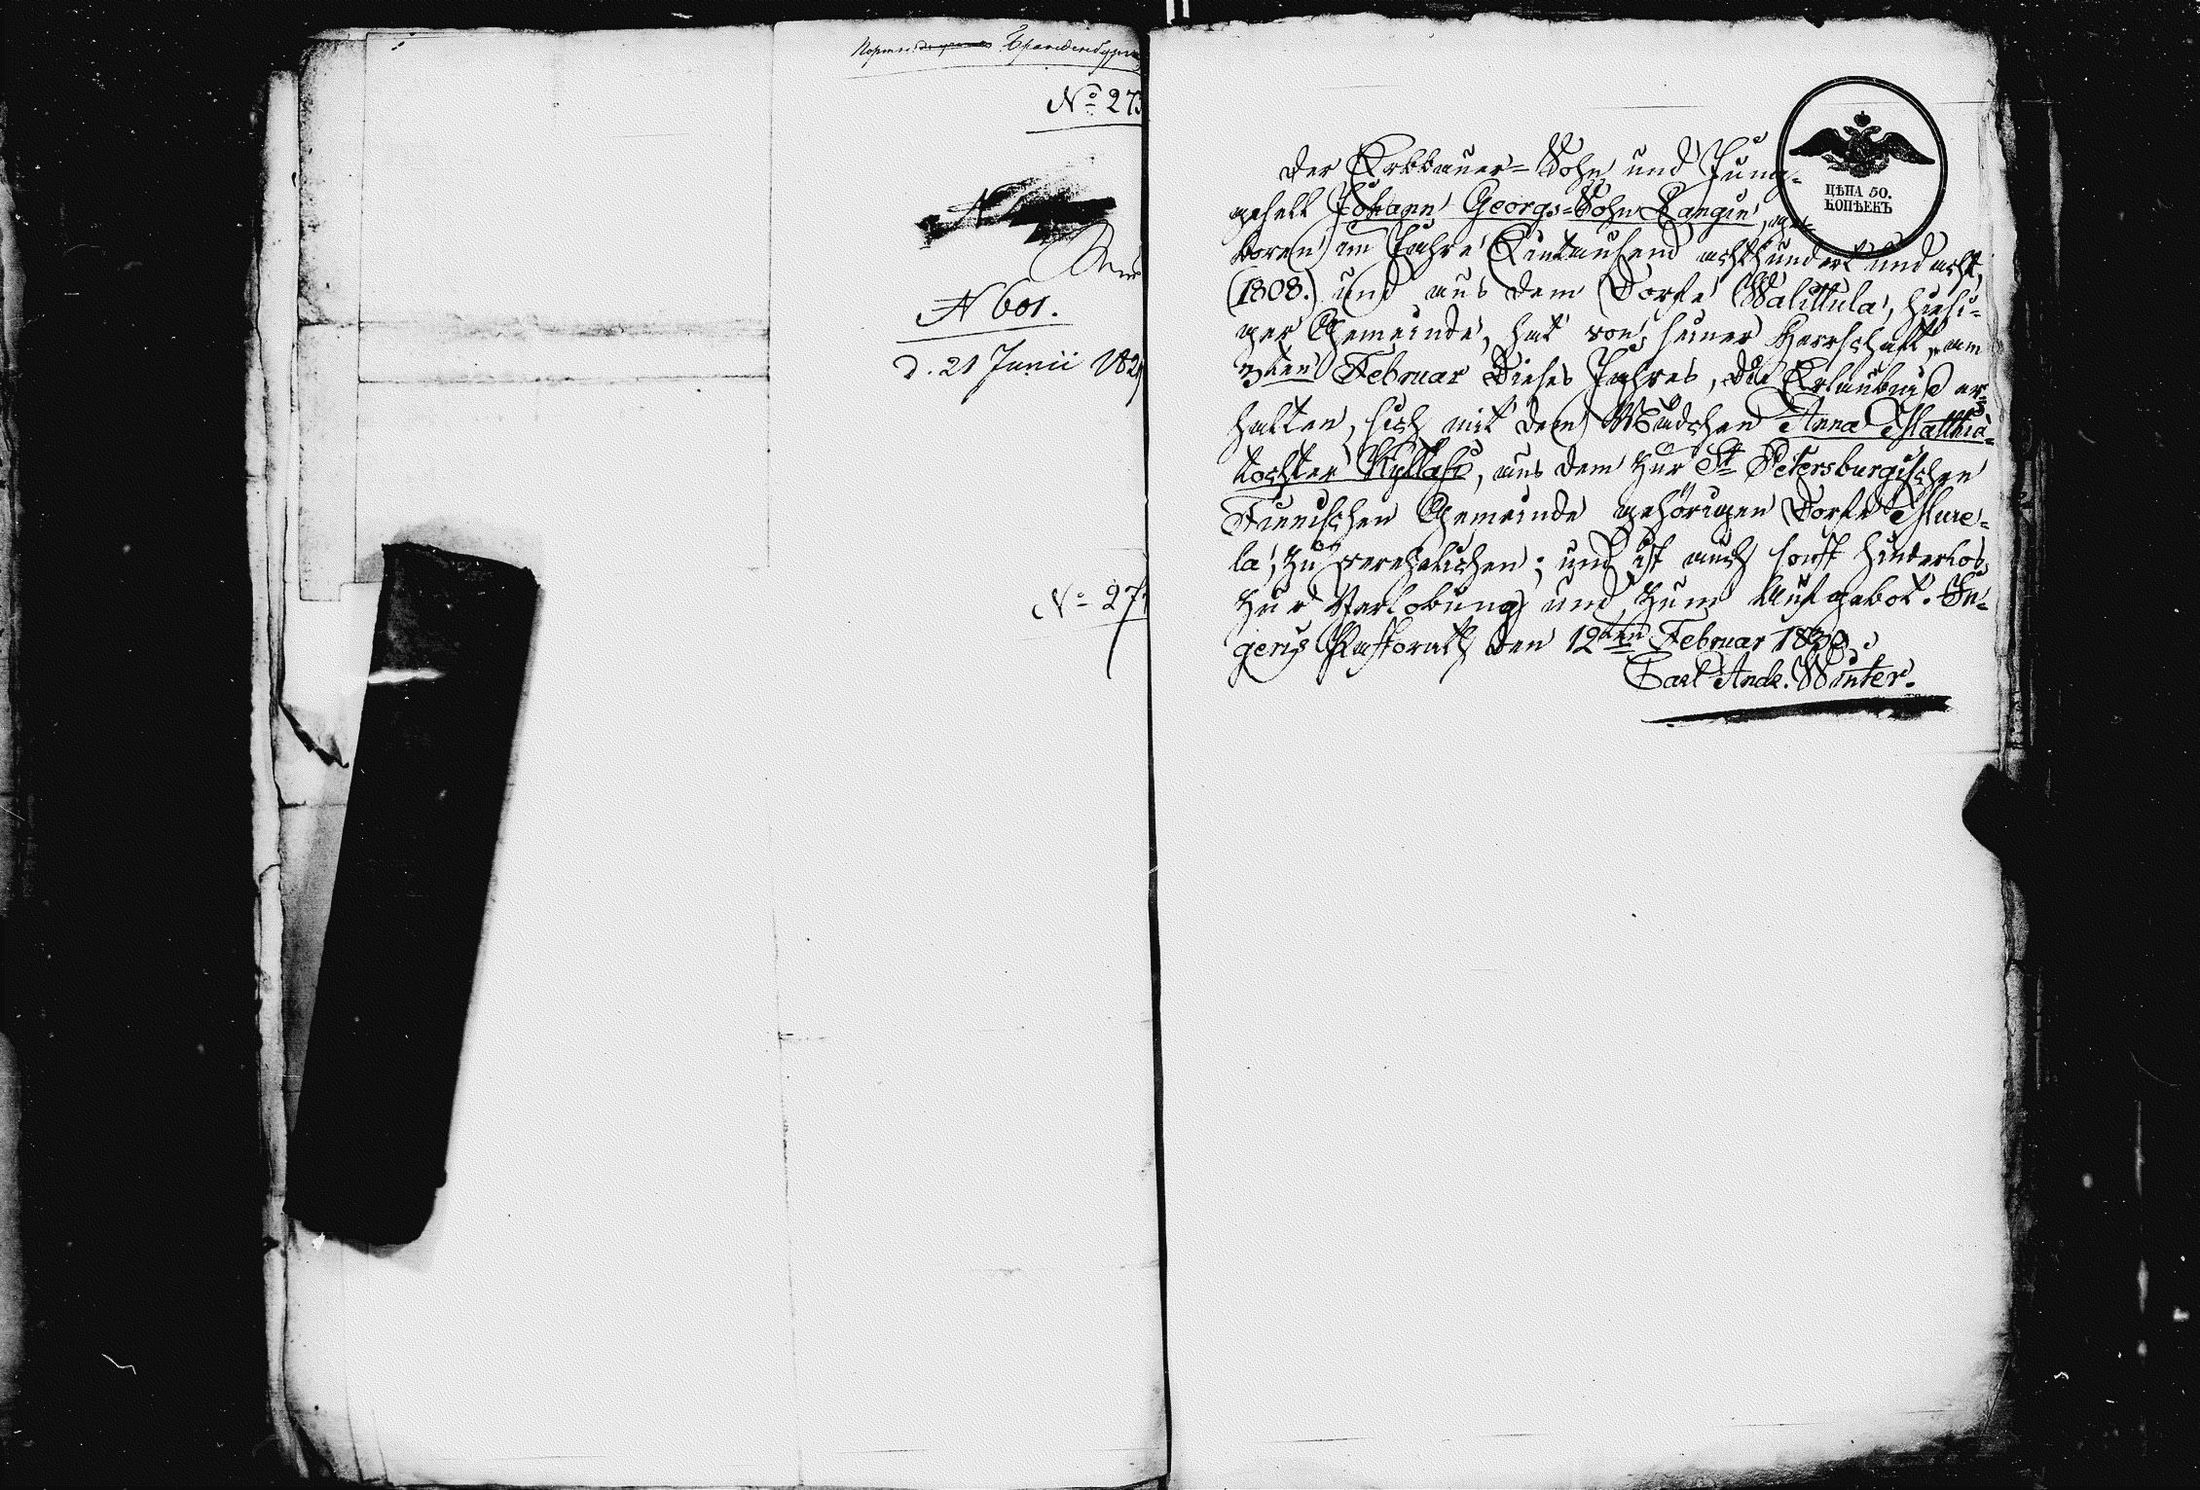 Бранденбург
No 27
N 601.
d. 21 Junii 182
No 27
ЦѢНА 50.
КОПѢЕКЪ
Der Erbbauer-Sohn und Jung-
gesell Johann Georgs-Sohn Rangin, ge-
boren im Jahre Eintausend achthundert und acht,
(1808.) und aus dem Dorfe Walittula, hiesi-
ger Gemeinde, hat von seiner Herrschaft, am
3ten Februar dieses Jahres, die Erlaubniß er-
halten, sich mit dem Mädchen Anna Matthia-
tochter, aus dem zur St Petersburgischen
Finnischen Gemeinde gehörigen Dorfe Mure-
la, zu verehelichen; und ist auch sonst hinderlos
zur Verlobung und zum Aufgebot. In-
geris Pastorath den 12ten Februar 1830.
Carl Andr. Winter.